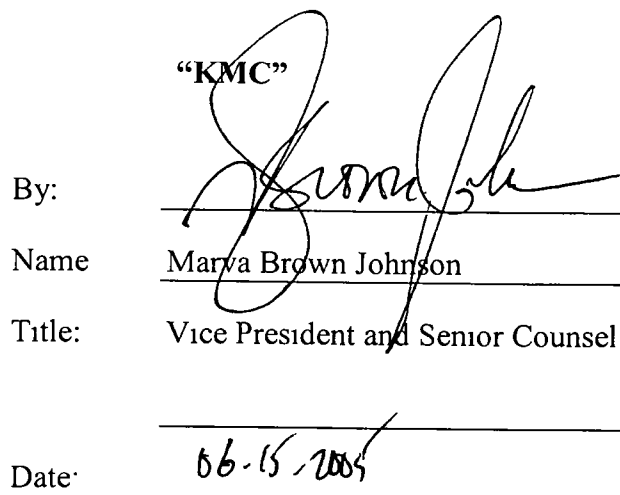 “KMC”
By: Brown Joh
Name Marva Brown Johnson
Title: Vice President and Senior Counsel
Date: 06.15.2005